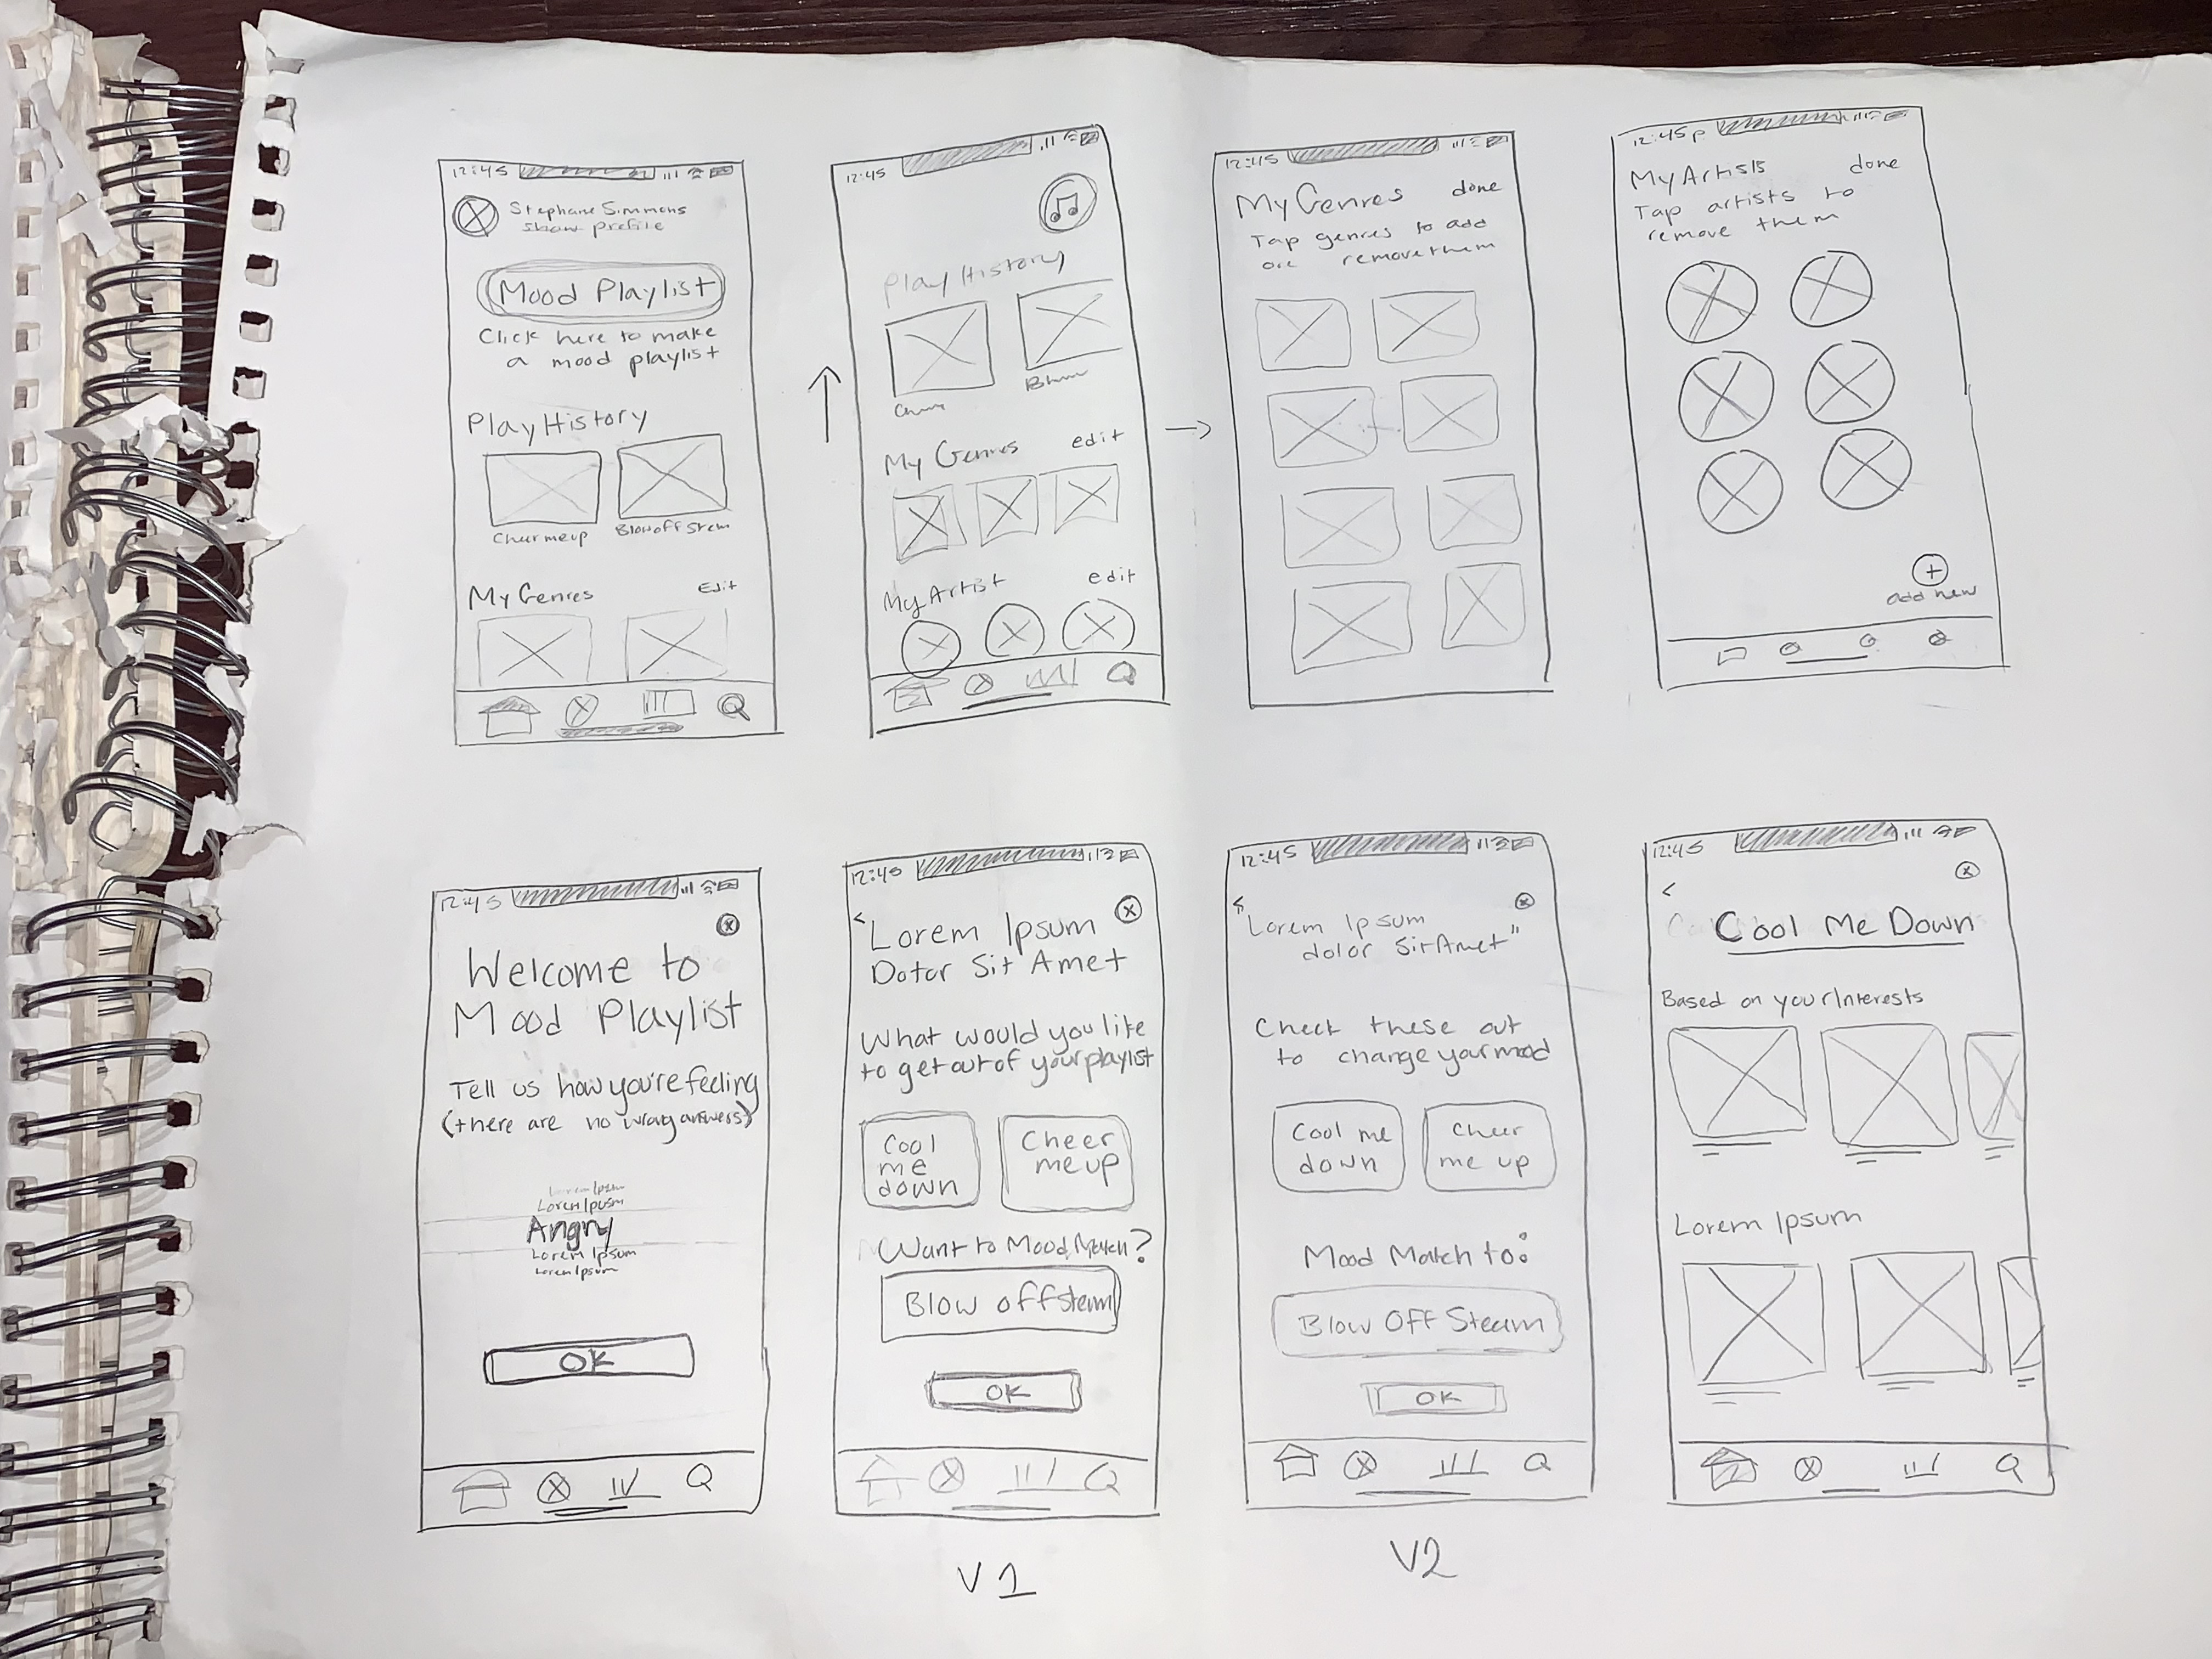 12:45
Stephanie Simmons
show profile
Mood Playlist
Click here to make
a mood playlist
Play History
Cheer me up
Blow off Stem
My Genres
Edit
12:45
Play History
My Genres
edit
My Artist
edit
12:45
My Genres
done
Tap genres to add
ore remove them
12:45p
My Artists
done
Tap artists to
remove them
+
add new
12:45
Welcome to
Mood Playlist
Tell us how you're feeling
(there are no wrong answers)
Lorem Ipsm
Lorem Ipusm
Angry
Lorem Ipsum
Lorem Ipsum
OK
12:45
<
Lorem Ipsum
Dotor Sit Amet
What would you like
to get out of your playlist
Cool
me
down
Cheer
me up
Want to Mood Match?
Blow off Steam
OK
V1
12:45
<
"Lorem Ipsum
dolor Sit Amet"
Check these out
to change your mood
Cool me
down
Cheer
me up
Mood Match to:
Blow Off Steam
OK
V2
12:45
<
Cool Me Down
Based on your Interests
Lorem Ipsum